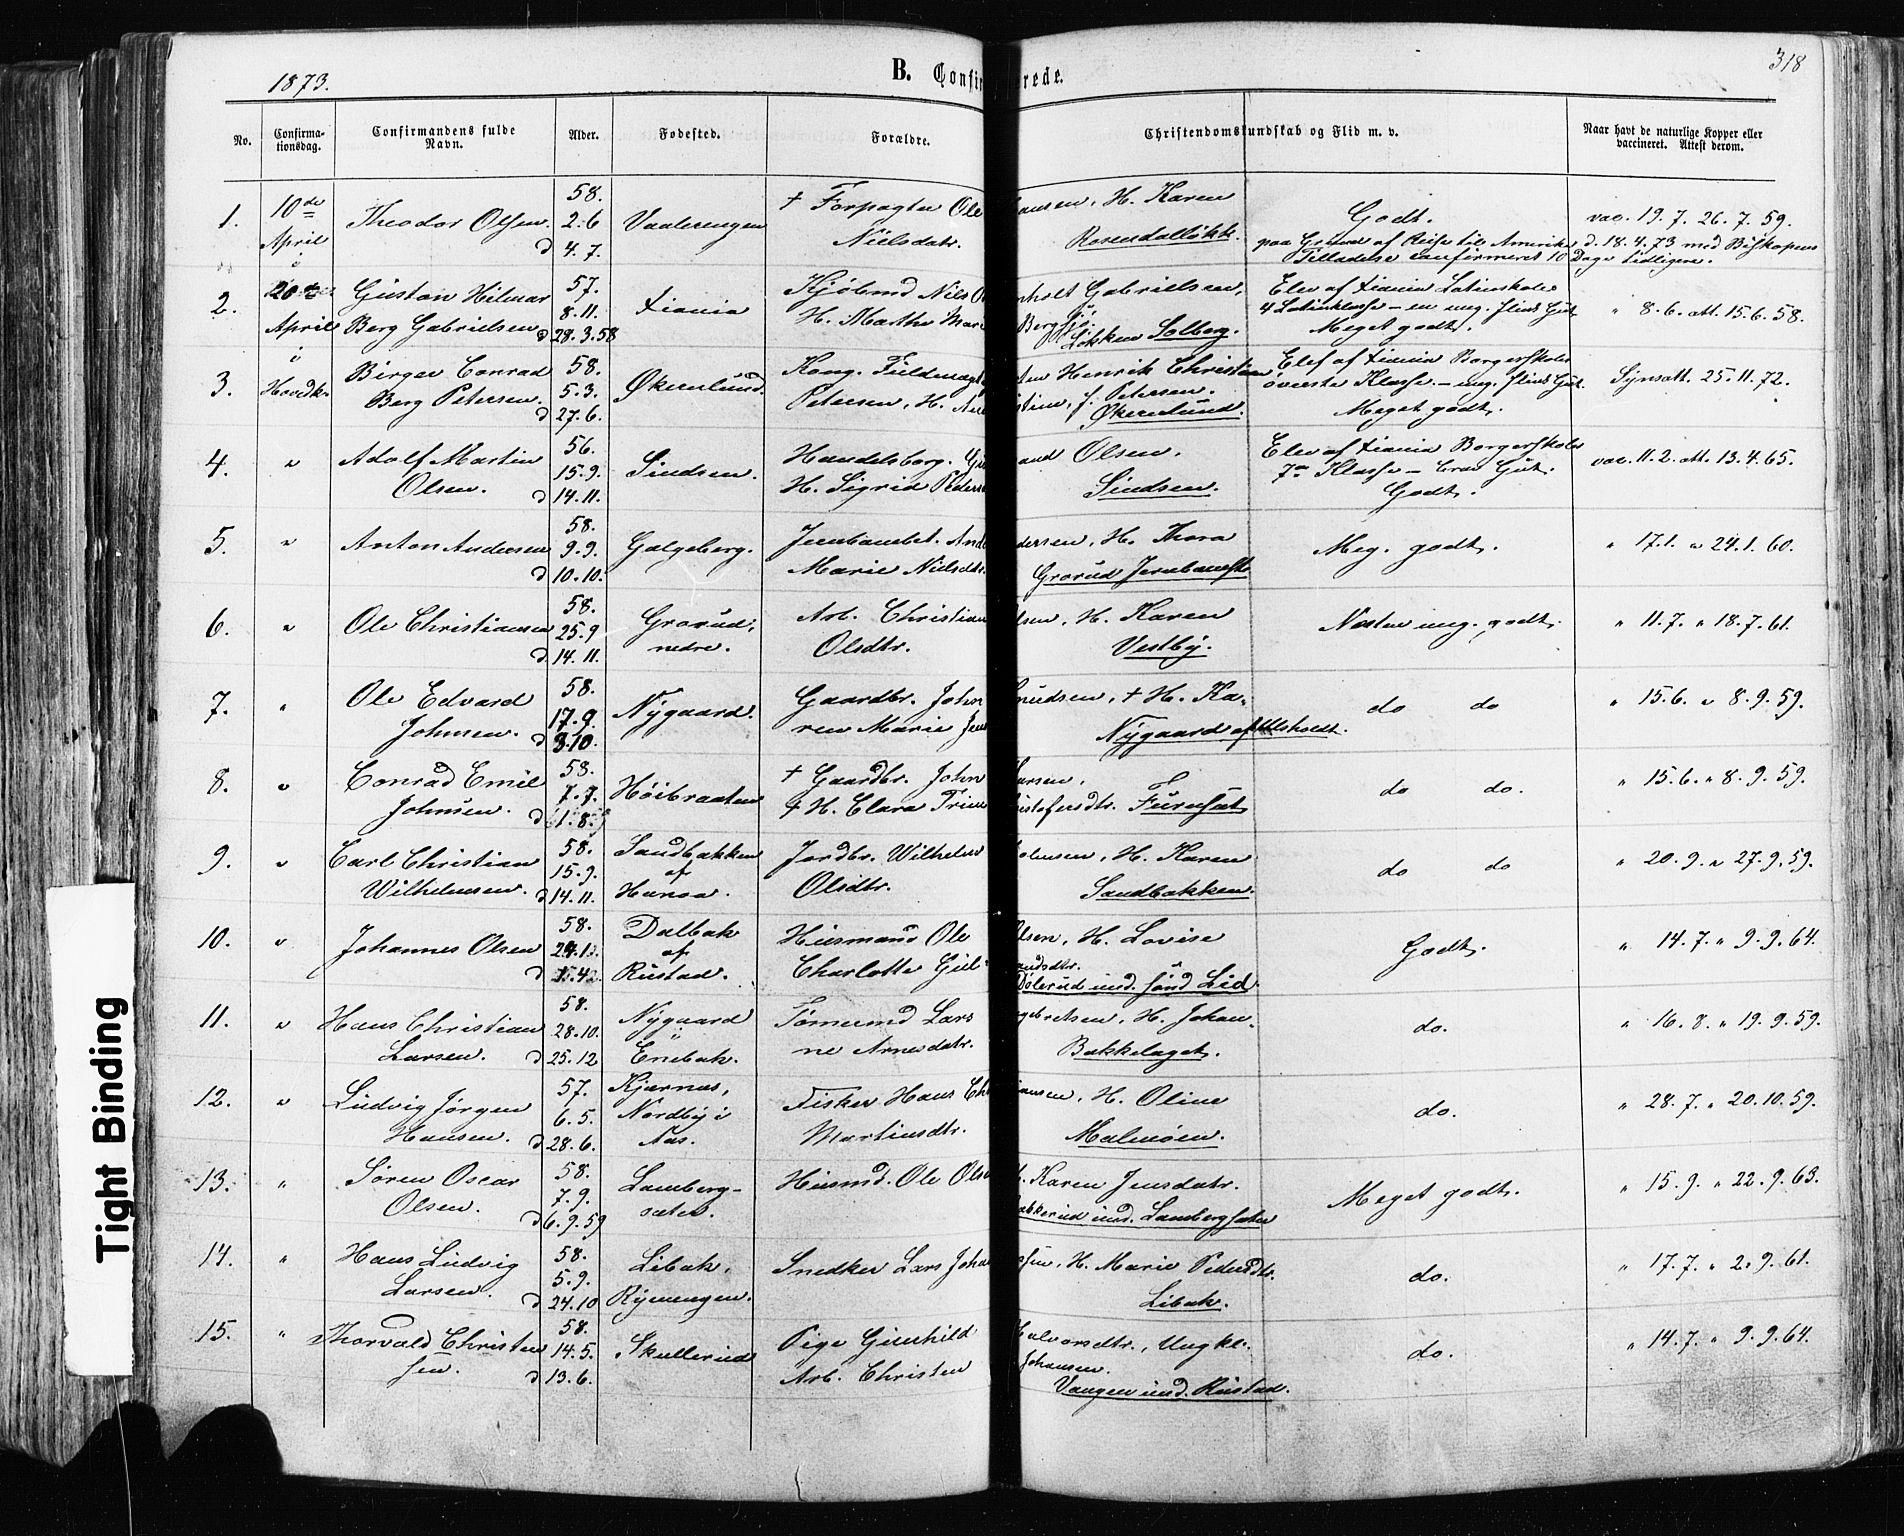 1873.
B. Confir rede.
318
No.
Confirma-
tionsdag.
Confirmandens fulde
Navn.
Alder.
Fødested.
Forældre.
Christendomskundskab og Flid m. v.
Naar havt de naturlige Kopper eller
vaccineret. Attest derom.
1. 10de April
Theodor Olsen
58.
2.6
d 4.7.
Vaalerengen
† Forpagter Ole ansen, H. Karen
Nielsdatr. Rosendalløkk.
Godt.
paa Grund af Reise til Amerika d. 18.4.73 med Biskopens
Tilladelse confirmeret 10 Dage tidligere.
vac. 19.7. 26.7.59.
2. 20de April i
Gustav Hilmar
Berg Gabrielsen
57.
8.11.
d 28.3.58
Xiania
Kjøbmd Nils O nholt Gabrielsen,
H. Martha Mar Berg
Løkken Solberg.
Elev af Xiania Latinskoles
4 Latinklasse – en meg. flink Gut
Meget godt.
" 8.6. att. 15.6.58.
3. Hovedk.
Birger Conrad
Berg Petersen.
58.
5.3.
d 27.6.
Økernlund.
Kong. Fuldmægt ten Henrik Christian
Petersen, H. stine, f. Petersen.
Økernlund.
Elef af Xiania Borgerskoles
øverste Klasse – meg. flink Gut.
Meget godt.
Synsatt. 25.11.72.
4. "
Adolf Martin
Olsen.
56.
15.9.
d 14.11.
Sindsen.
Handelsborg. Gu and Olsen,
H. Sigrid Peders
Sindsen.
Elev af Xiania Borgerskoles
7de Klasse – brav Gut.
Godt.
vac. 11.2. att. 13.4.65.
5. "
Anton Andersen
58.
9.9.
d 10.10.
Galgeberg.
Jernbanebet. And dersen, H. Thora
Marie Nielsdtr. Grorud Jernbanest.
Meg. godt.
" 17.1. " 24.1.60.
6. "
Ole Christiansen
58.
25.9
d 14.11.
Grorud,
nedre.
Arb. Christian lsen, H. Karen
Olsdtr. Vestby.
Næsten meg. godt.
" 11.7. " 18.7.61.
7. "
Ole Edvard
Johnsen.
58.
17.9.
d 3.10.
Nygaard.
Gaardbr. John nudsen, † H. Ka-
ren Marie Jen Nygaard af Ulsholdt.
do do
" 15.6. " 8.9.59.
8. "
Conrad Emil
Johnsen.
58.
7.7.
d 1.8.
Høibraaten
† Gaardbr. John Larsen,
† H. Clara Trine istofersdtr. Furuset
do do.
" 15.6. " 8.9.59.
9. "
Carl Christian
Wilhelmsen.
58.
15.9.
d 14.11.
Sandbakken
af
Hanoa.
Jordbr. Wilhelm olensen, H. Karen
Olsdtr. Sandbakken.
do do
" 20.9. " 27.9.59.
10. "
Johannes Olsen
58.
d
Dalbak
af
Rustad.
Husmand Ole lsen, H. Lovise
Charlotte Gul- andsdtr.
Dølerud und. sønd Lid.
Godt.
" 14.7. " 9.9.64.
11. "
Hans Christian
Larsen.
58.
28.10.
d 25.12
Nygaard
i
Enebak.
Tømmmd Lars ngebretsen, H. Johan-
ne Arnesdatr. Bakkelaget.
do.
" 16.8. " 19.9.59.
12. "
Ludvig Jørgen
Hansen.
57.
6.5.
d 28.6.
Kjærnæs,
Nordby i
Aas.
Fisker Hans Ch iansen, H. Oline
Martinsdtr. Malmøen.
do.
" 28.7. " 20.10.59.
13. "
Søren Oscar
Olsen.
58.
7.9.
d 6.9.59
Lamberg-
sæter.
Husmd. Ole Olse H. Karen Jensdatr.
akkerud und. Lambergsæter
Meget godt.
" 15.9. " 22.9.63.
14. "
Hans Ludvig
Larsen.
58.
5.9.
d 24.10
Libak,
Rymengen.
Snedker Lars Joha sen, H. Marie Pedersdtr.
Libak.
do.
" 17.7. " 2.9.61.
15. "
Thorvald Christen
sen.
58.
14.5.
d 13.6.
Skullerud
Pige Gunhild Halvorsdtr., Ungkl.
Arb. Christen Johansen.
Vangen und. Rustad.
do.
" 14.7. " 9.9.64.
Tight Binding